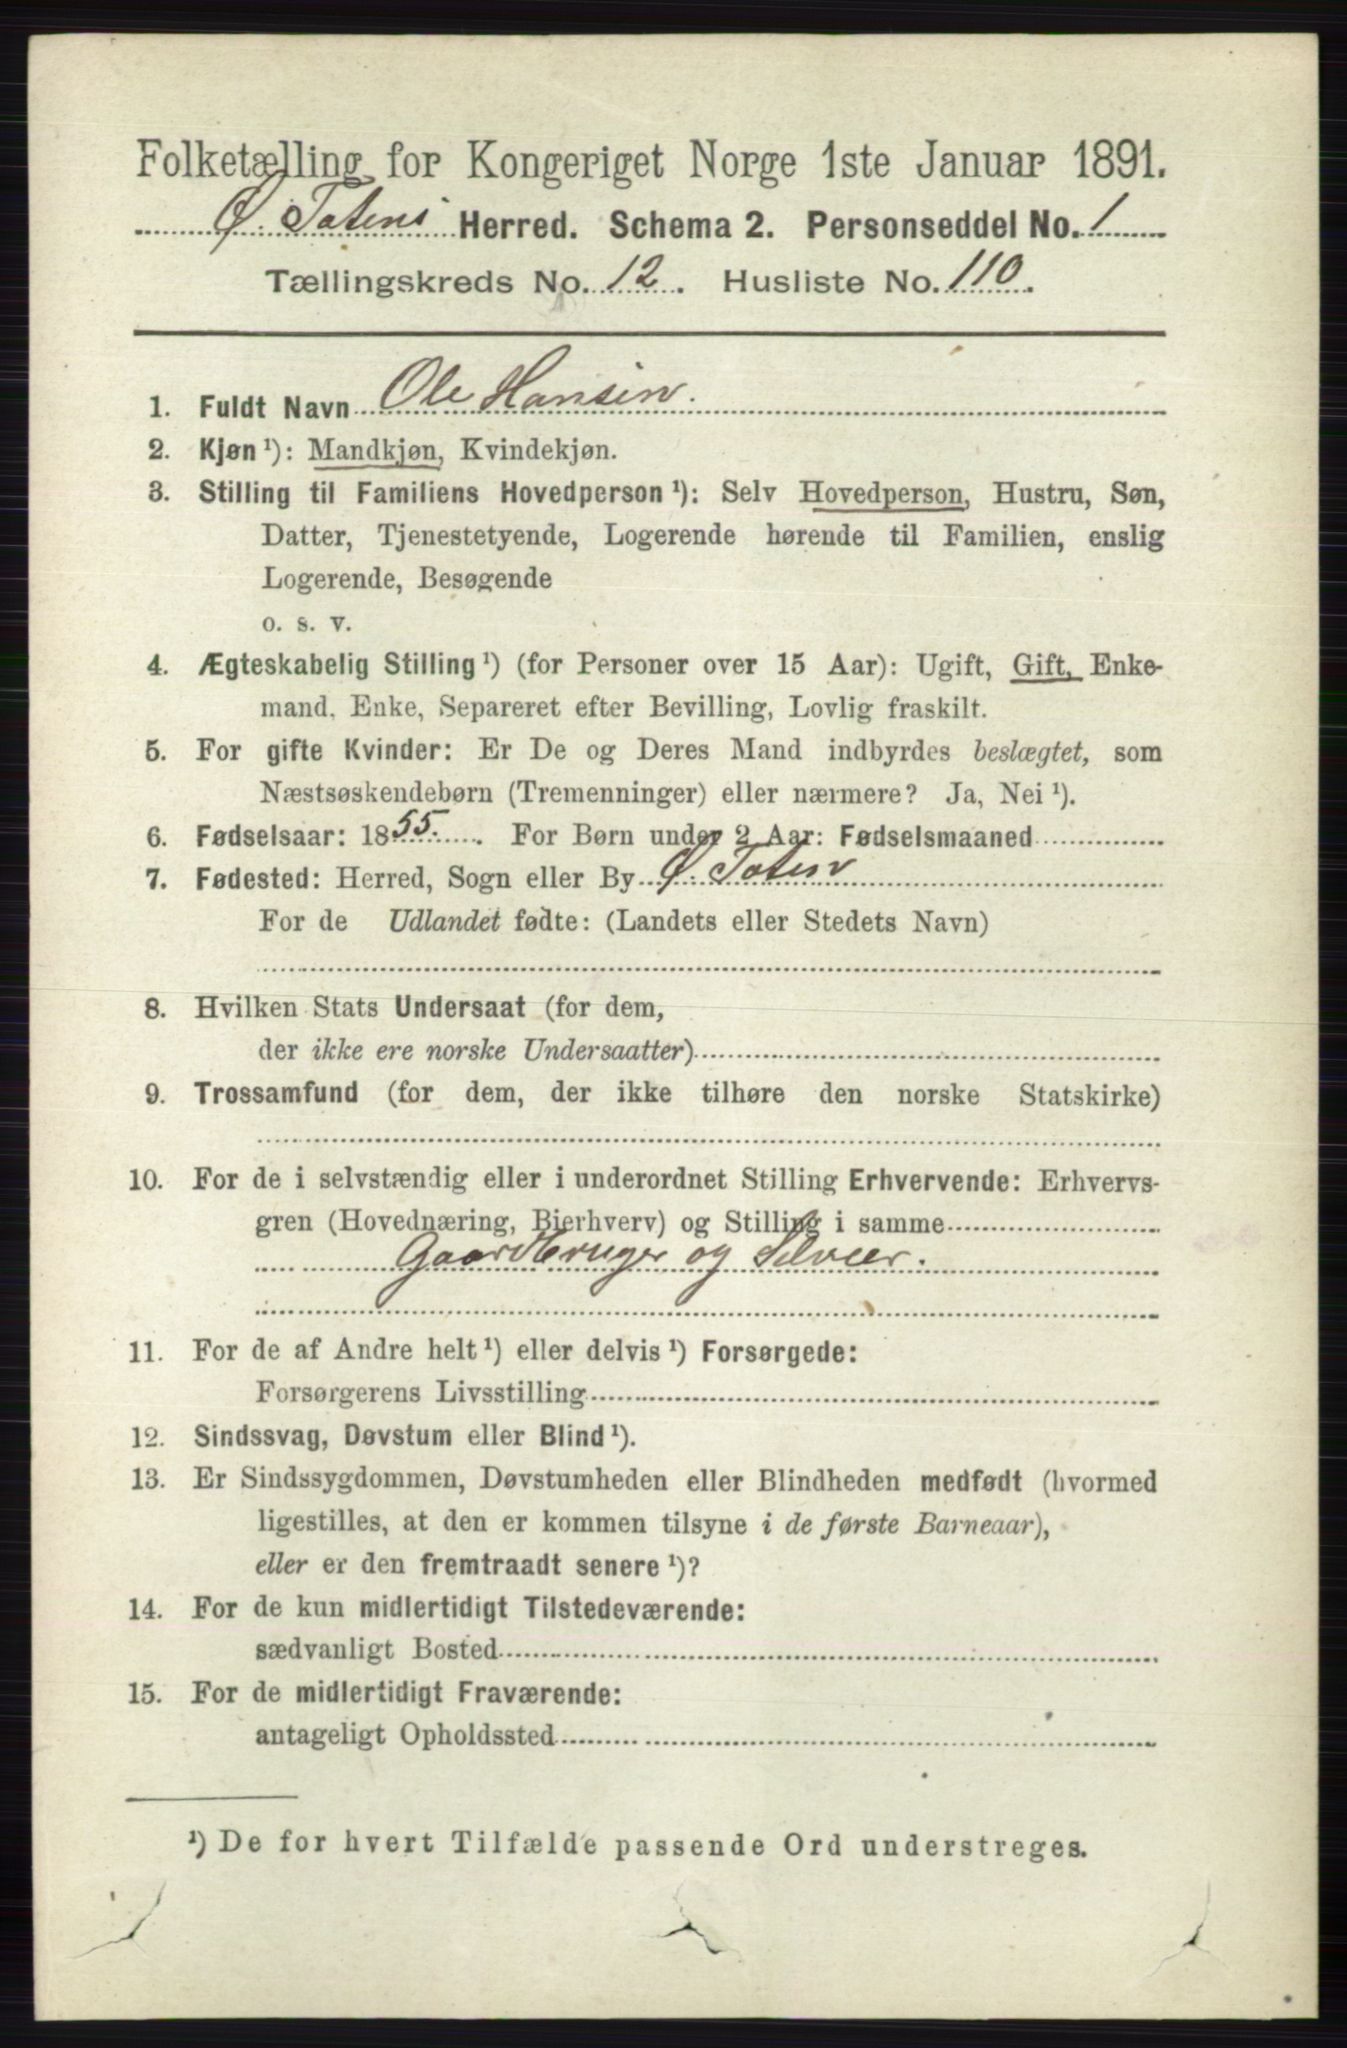 Folketælling for Kongeriget Norge 1ste Januar 1891.
Ø. Totens Herred. Schema 2. Personseddel No. 1
Tællingskreds No. 12. Husliste No. 110.
1. Fuldt Navn Ole Hansen.
2. Kjøn ¹): Mandkjøn, Kvindekjøn.
3. Stilling til Familiens Hovedperson ¹): Selv Hovedperson, Hustru, Søn,
Datter, Tjenestetyende, Logerende hørende til Familien, enslig
Logerende, Besøgende
o. s. v.
4. Ægteskabelig Stilling ¹) (for Personer over 15 Aar): Ugift, Gift, Enke-
mand, Enke, Separeret efter Bevilling, Lovlig fraskilt.
5. For gifte Kvinder: Er De og Deres Mand indbyrdes beslægtet, som
Næstsøskendebørn (Tremenninger) eller nærmere? Ja, Nei ¹).
6. Fødselsaar: 1855. For Børn under 2 Aar: Fødselsmaaned
7. Fødested: Herred, Sogn eller By Ø. Toten
For de Udlandet fødte: (Landets eller Stedets Navn)
8. Hvilken Stats Undersaat (for dem,
der ikke ere norske Undersaatter)
9. Trossamfund (for dem, der ikke tilhøre den norske Statskirke)
10. For de i selvstændig eller i underordnet Stilling Erhvervende: Erhvervs-
gren (Hovednæring, Bierhverv) og Stilling i samme
Gaardbruger og Selveier.
11. For de af Andre helt ¹) eller delvis ¹) Forsørgede:
Forsørgerens Livsstilling
12. Sindssvag, Døvstum eller Blind ¹).
13. Er Sindssygdommen, Døvstumheden eller Blindheden medfødt (hvormed
ligestilles, at den er kommen tilsyne i de første Barneaar),
eller er den fremtraadt senere ¹)?
14. For de kun midlertidigt Tilstedeværende:
sædvanligt Bosted
15. For de midlertidigt Fraværende:
antageligt Opholdssted
¹) De for hvert Tilfælde passende Ord understreges.